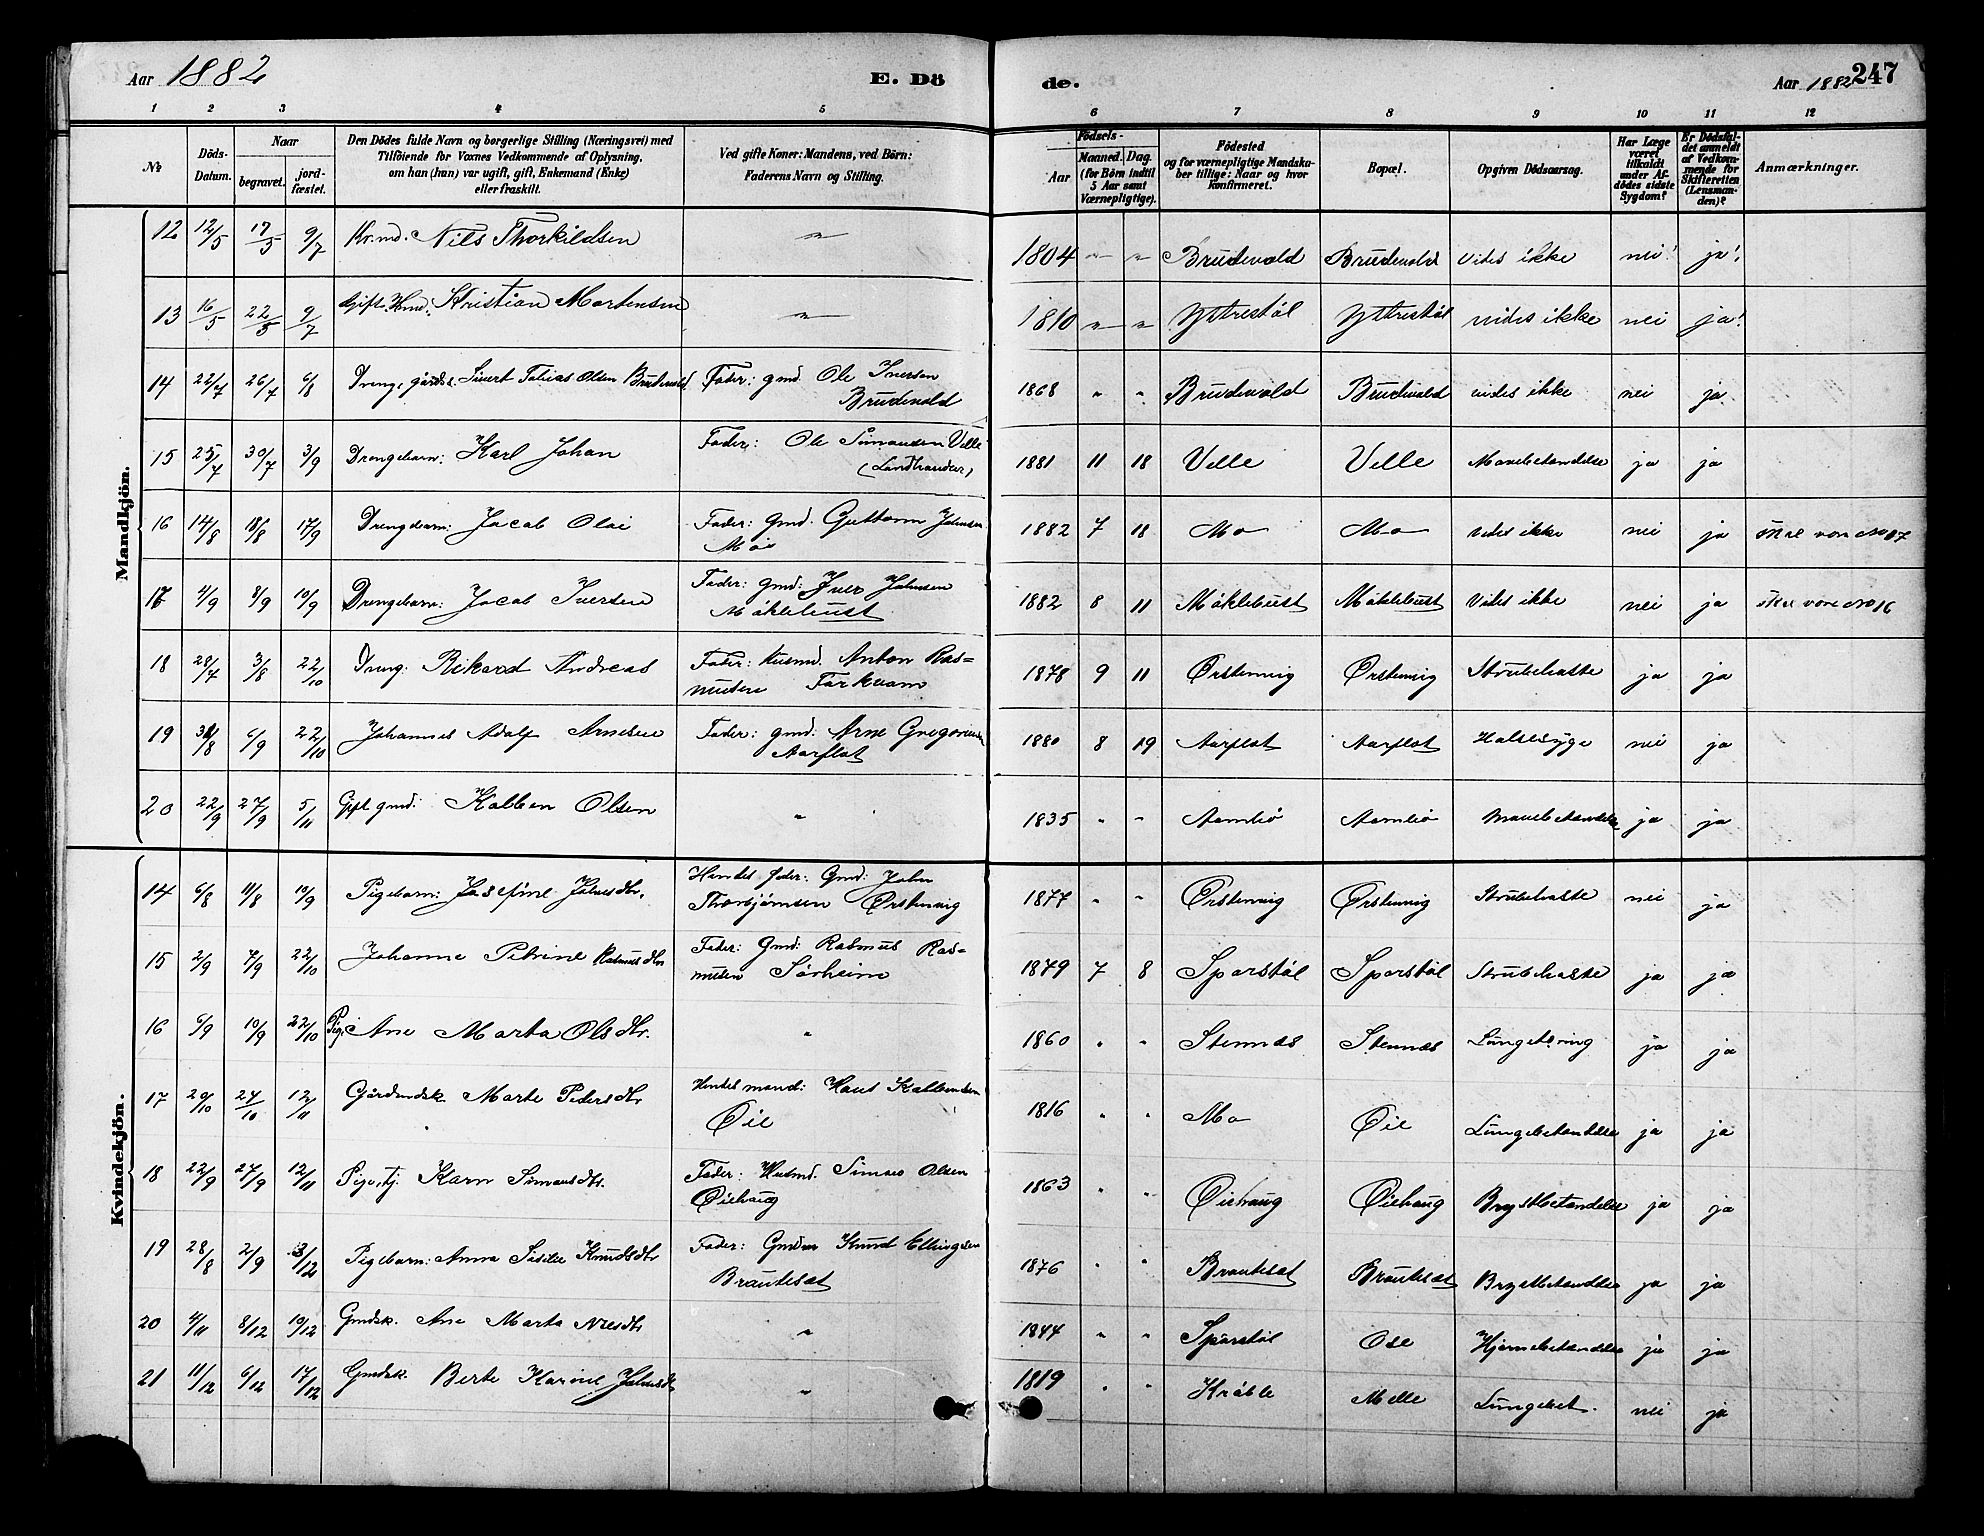 Aar 1882 E. Dö de. Aar 1882 247
1 2 3 4 5 6 7 8 9 10 11 12
№ Döds-Datum. Naar begravet. jordfæstet. Den Dödes fulde Navn og borgerlige Stilling (Næringsvei) med Tilföiende for Voxnes Vedkommende af Oplysning, om han (hun) var ugift, gift, Enkemand (Enke) eller fraskilt. Ved gifte Koner: Mandens, ved Börn: Faderens Navn og Stilling. Födsels- Aar Maaned. Dag. (for Börn indtil 5 Aar samt Værnepligtige). Födested og for værnepligtige Mandskaber tillige: Naar og hvor konfirmeret. Bopæl. Opgiven Dödsaarsag. Har Læge været tilkaldt under Afdödes sidste Sygdom? Er Dödsfaldet anmeldt af Vedkommende for Skifteretten (Lensmanden)? Anmærkninger.
Mandkjön.
12 12/5 17/5 9/7 Kr.md. Nils Thorkildsen " 1804 " " Brudevold Brudevold vides ikke nei! ja!
13 16/5 22/5 9/7 Gift Kmd: Kristian Martensen " 1810 " " Ytrestøl Ytrestøl vides ikke nei ja!
14 22/7 26/7 6/8 Dreng, gårds. Sivert Tobias Olsen Brudevold Fader: gmd. Ole Iversen Brudevold 1868 " " Brudevold Brudevold vides ikke nei ja
15 25/7 30/7 3/9 Drengebarn: Karl Johan Fader: Ole Simonsen Velle (Landhandler) 1881 11 18 Velle Velle Mavebetændelse ja ja
16 14/8 18/8 17/9 Drengebarn: Jacob Olai Fader: gmd. Guttorm Johnsen Mo 1882 7 18 Mo Mo vides ikke nei ja skal være No 17
17 4/9 8/9 10/9 Drengebarn: Jacob Iversen Fader: gmd: Iver Johnsen Møklebust 1882 8 11 Møklebust Møklebust Vides ikke nei ja skal være No 16
18 28/7 3/8 22/10 Dreng: Rikard Andreas Fader: Husmd. Anton Rasmusen Farkvam 1878 9 11 Ørstenvig Ørstenvig Strubehoste ja ja
19 31/8 6/9 22/10 Johannes Adolf Arnesen Fader: gmd. Arne Gregoriusen Aarflot 1880 8 19 Aarflot Aarflot Halssyge nei ja
20 22/9 27/9 5/11 Gift gmd: Kolben Olsen " 1835 " " Aamliø Aamliø Mavebetændelse ja ja
Kvindekjön.
14 6/8 11/8 10/9 Pigebarn: Josefine Johnsdtr. Hendes fader: Gmd: John Thorbjørnsen Ørstenvig 1877 " " Ørstenvig Ørstenvig Strubehoste nei ja
15 2/9 7/9 22/10 Johanne Petrine Rasmusdtr Fader: Gmd: Rasmus Rasmusen Sørheim 1879 7 8 Sporstøl Sporstøl Strubehoste ja ja
16 6/9 10/9 22/10 Pige Ane Marta Olsdtr. " 1860 " " Stennæs Stennæs Lungetæring ja ja
17 20/10 27/10 12/11 Gårdmdsk. Marte Pedersdtr Hendes mand: Hans Kolbensen Øie 1816 " " Mo Øie Lungebetændelse ja ja
18 22/9 27/9 12/11 Pige, tj. Karn Simonsdtr. Fader: Husmd. Simon Olsen Øiehaug 1863 " " Øiehaug Øiehaug Brystbetændelse ja ja
19 28/8 2/9 3/12 Pigebarn: Anna Sesilie Knudsdtr Fader: Gmd Knud Ellingsen Brautesæt 1876 " " Brautesæt Brautesæt Brystbetændelse ja ja
20 4/11 8/12 10/12 Gmdsk. Ane Marta Nilsdtr " 1844 " " Sporstøl Ose Hjernebetændelse ja ja
21 11/12 6/12 17/12 Gmdsk. Berte Karine Johnsdtr " 1819 " " Kråble Melle Lungebet. nei ja